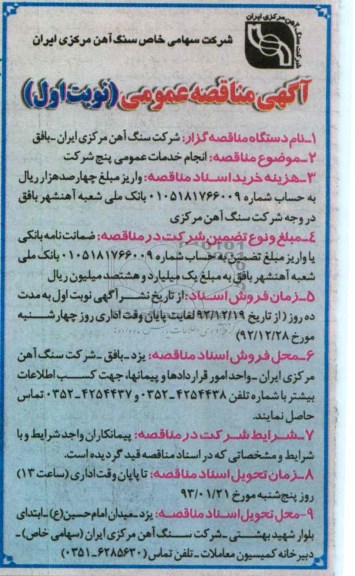 شرکت سنگ آهن مرکزی ایران
شرکت سهامی خاص سنگ آهن مرکزی ایران
آگهی مناقصه عمومی (نوبت اول)
۱_نام دستگاه مناقصه گزار: شرکت سنگ آهن مرکزی ایران _بافق
۲_موضوع مناقصه: انجام خدمات عمومی پنج شرکت
۳_هزینه خرید اسناد مناقصه: واریز مبلغ چهارصدهزار ریال
به حساب شماره ۰۱۰۵۱۸۱۷۶۶۰۰۹ بانک ملی شعبه آهنشهر بافق
در وجه شرکت سنگ آهن مرکزی
۴_مبلغ و نوع تضمین شرکت در مناقصه: ضمانت نامه بانکی
یا واریز مبلغ تضمین به حساب شماره ۰۱۰۵۱۸۱۷۶۶۰۰۹ بانک ملی
شعبه آهنشهر بافق به مبلغ یک میلیارد و هشتصد میلیون ریال
۵_زمان فروش اسناد: از تاریخ نشر آگهی نوبت اول به مدت
ده روز (از تاریخ ۹۲/۱۲/۱۹ لغایت پایان وقت اداری روز چهارشنبه
مورخ ۹۲/۱۲/۲۸)
۶_محل فروش اسناد مناقصه: یزد_بافق _شرکت سنگ آهن
مرکزی ایران _واحد امور قراردادها و پیمانها، جهت کسب اطلاعات
بیشتر با شماره تلفن ۴۲۵۴۴۳۸_۰۳۵۲ و ۴۲۵۴۴۳۷_۰۳۵۲ تماس
حاصل نمایند.
۷_شرایط شرکت در مناقصه: پیمانکاران واجد شرایط و با
شرایط و مشخصاتی که در اسناد مناقصه قید گردیده است.
۸_زمان تحویل اسناد مناقصه: تا پایان وقت اداری (ساعت ۱۳)
روز پنج شنبه مورخ ۹۳/۰۱/۲۱
۹-محل تحویل اسناد مناقصه: یزد_میدان امام حسین(ع)_ابتدای
بلوار شهید بهشتی _شرکت سنگ آهن مرکزی ایران (سهامی خاص) _
دبیرخانه کمیسیون معاملات _تلفن تماس (۶۲۸۵۶۳۰_۰۳۵۱)